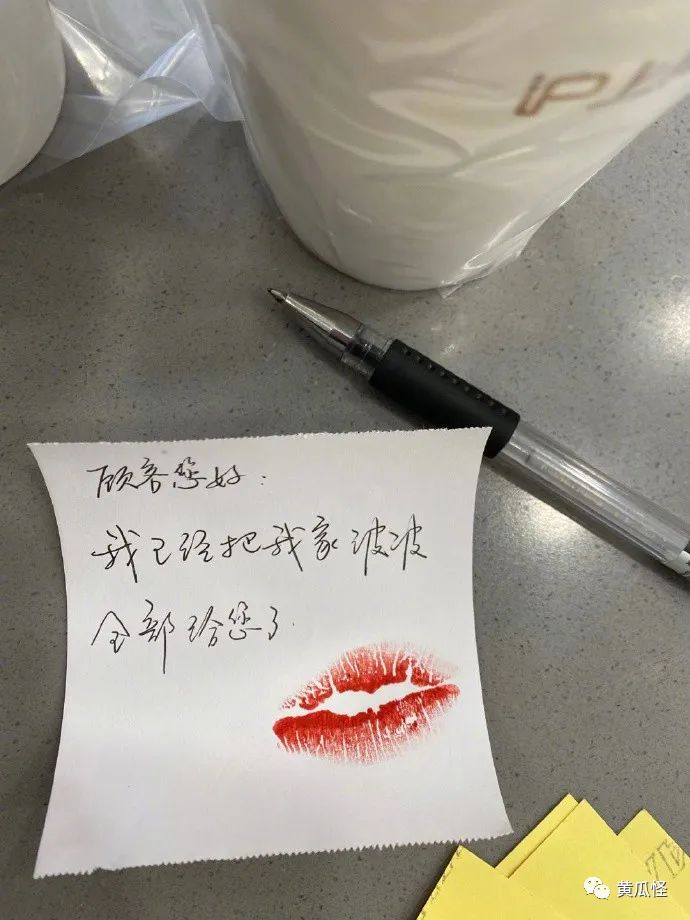 顾客您好:
我已经把我家波波
全部给您了.
黄瓜怪